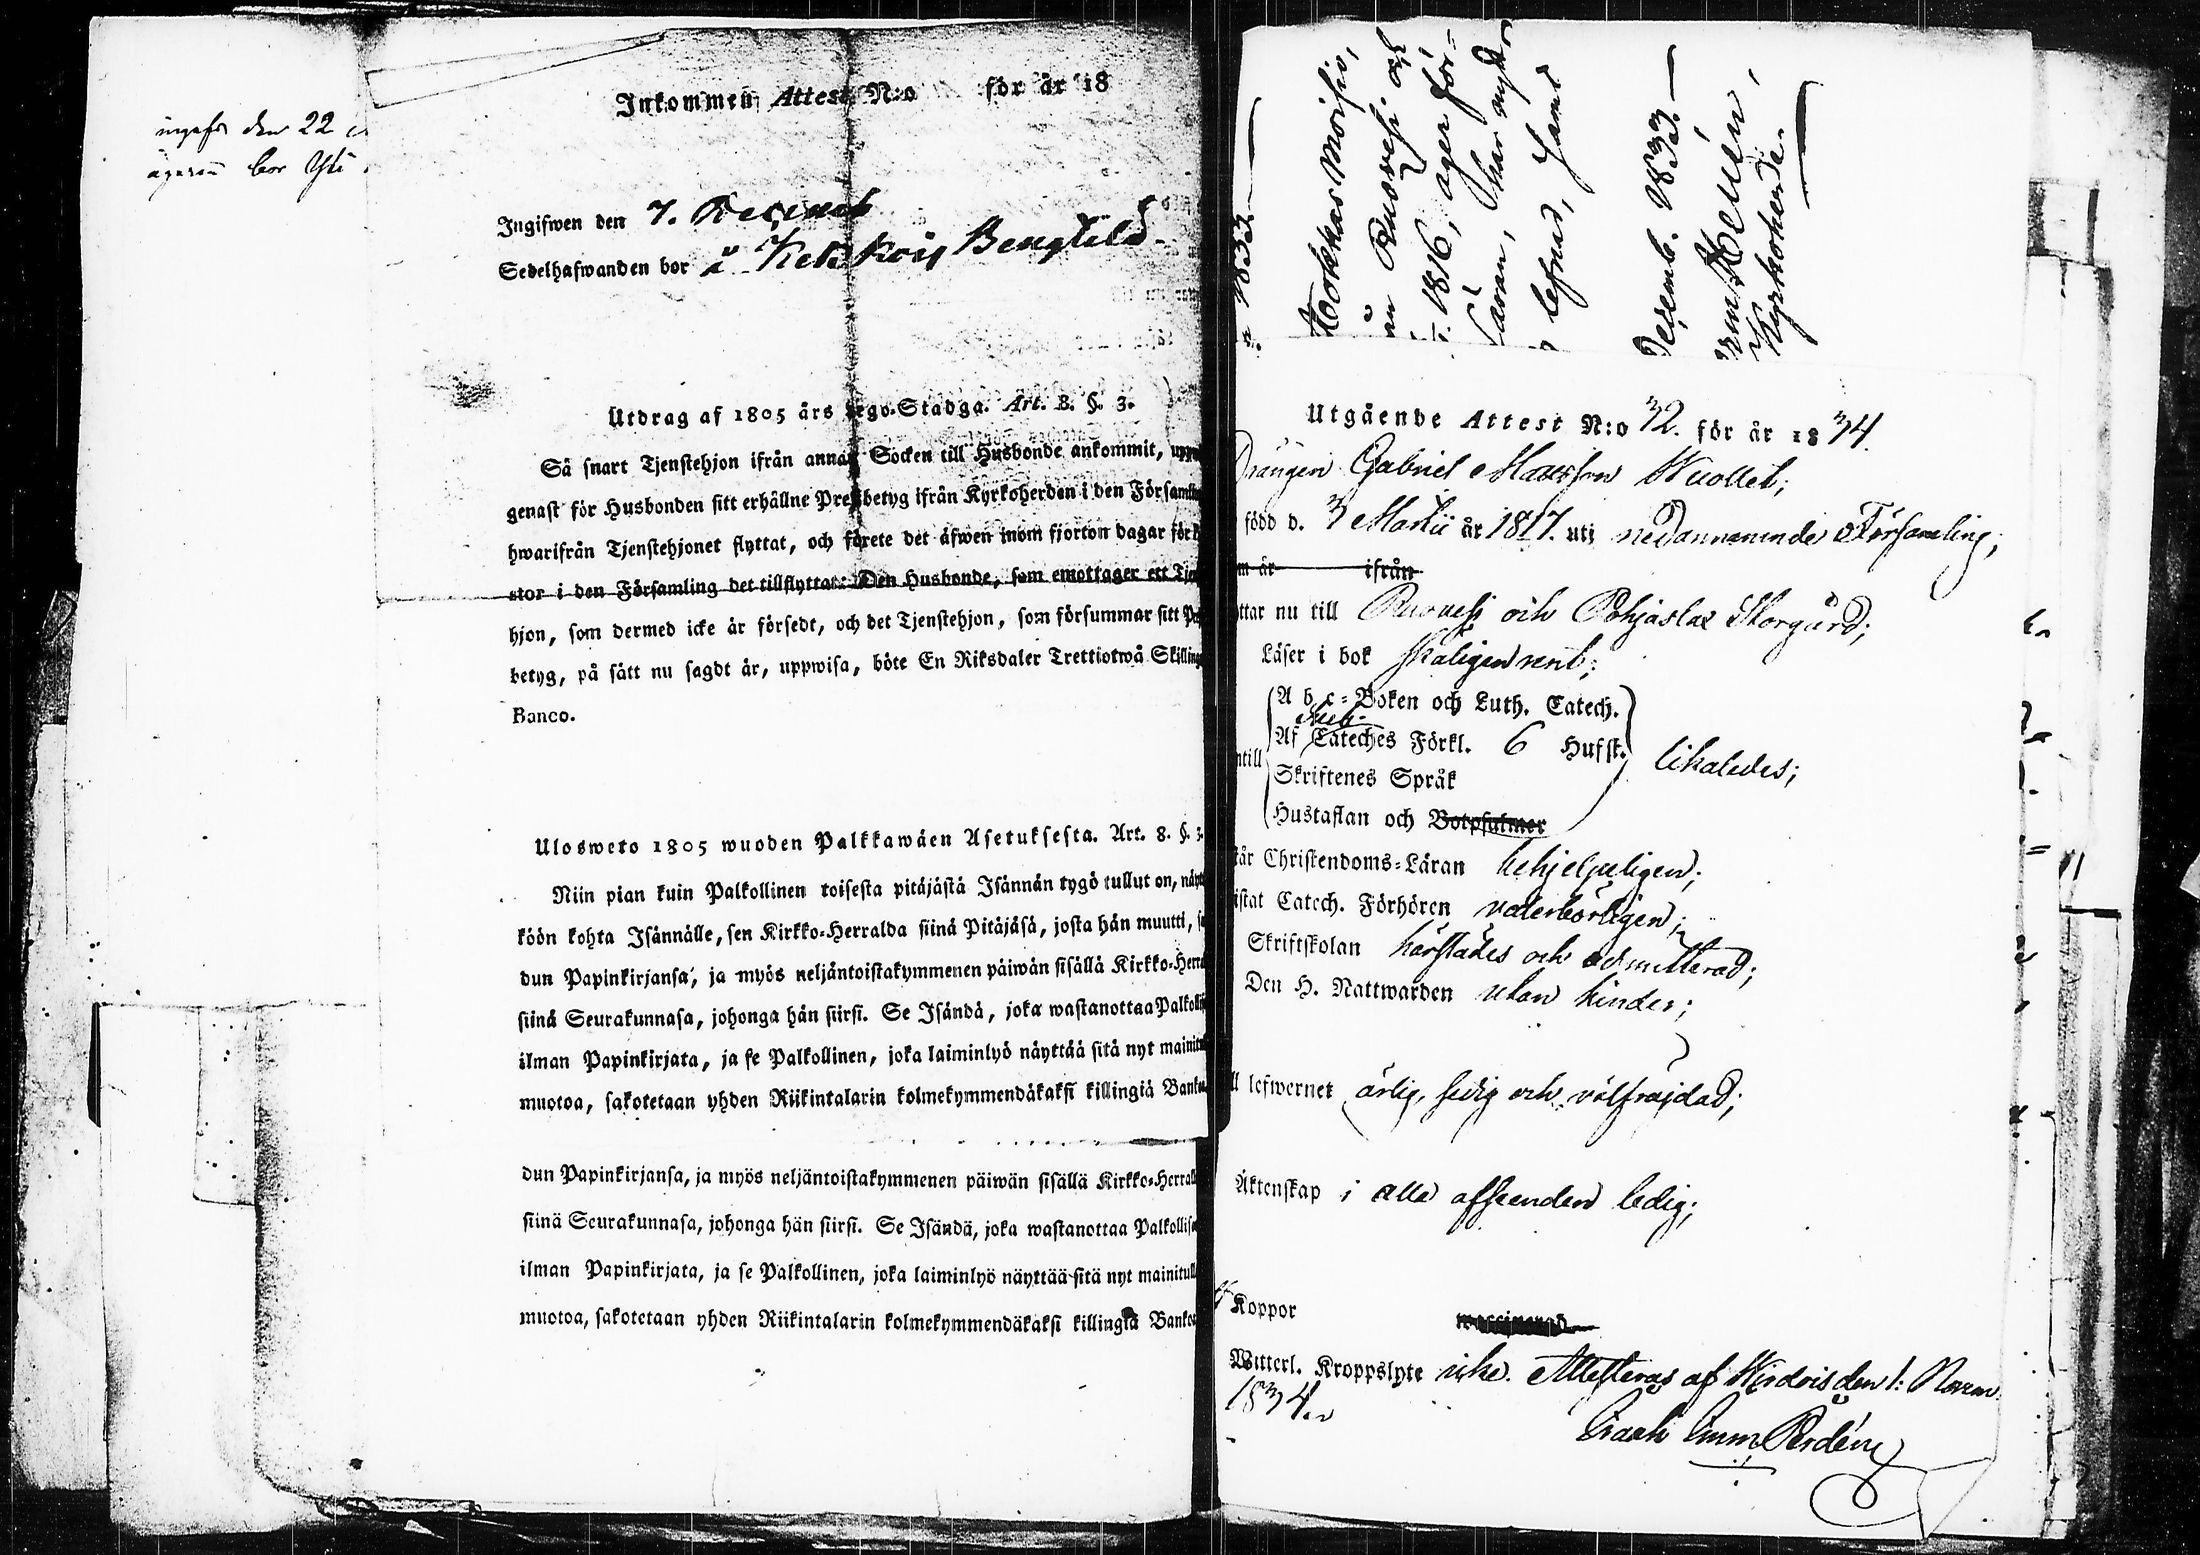 den 22
bor Yli
Inkommen Attest N:o för år 18
Ingifwen den 7. Decemb
Sedelhafwanden bor å Kekkois Bengtild
Utdrag af 1805 års Lego-Stadga. Art. 8. §. 3.
Så snart Tjenstehjon ifrån annan Socken till Husbonde ankommit, upp
genast för Husbonden sitt erhållne Prestbetyg ifrån Kyrkoherden i den Församlin
hwarifrån Tjenstehjonet flyttat, och förete det äfwen inom fjorton dagar för
stor i den Församling det tillflyttat: Den Husbonde, som emottager ett Tjen
hjon, som dermed icke är försedt, och det Tjenstehjon, som försummar sitt Pr
betyg, på sätt nu sagdt är, uppwisa, böte En Riksdaler Trettiotwå Skilling
Banco.
Ulosweto 1805 wuoden Palkkawäen Asetuksesta. Art. 8. §. 3.
Niin pian kuin Palkollinen toisesta pitäjästä Isännän tygö tullut on, näyt
köön kohta Isännälle, sen Kirkko-Herralda siinä Pitäjäsä, josta hän muutti, sa
dun Papinkirjansa, ja myös neljäntoistakymmenen päiwän sisällä Kirkko-Herra
siinä Seurakunnasa, johonga hän siirsi. Se Isändä, joka wastanottaa Palkollis
ilman Papinkirjata, ja se Palkollinen, joka laiminlyö näyttää sitä nyt mainitul
muotoa, sakotetaan yhden Riikintalarin kolmekymmendäkaksi killingiä Banko
dun Papinkirjansa, ja myös neljäntoistakymmenen päiwän sisällä Kirkko-Herral
siinä Seurakunnasa, johonga hän siirsi. Se Isändä, joka wastanottaa Palkollise
ilman Papinkirjata, ja se Palkollinen, joka laiminlyö näyttää sitä nyt mainitull
muotoa, sakotetaan yhden Riikintalarin kolmekymmendäkaksi killingiä Banko
1833
Ruovesi och
1816, äger för-
Läran, har
lefnad, samt
Decemb. 1833.
Kyrkoherde.
Utgående Attest N:o 32. för år 1834.
Drängen Gabriel Matsson Wuollet;
född d. 3 Martii år 1817. uti nedannämnde Församling;
m år ifrån
ttar nu till Ruovesi och Pohjaslax Storgård;
Läser i bok skäligen rent;
A b c-Boken och Luth. Catech.
Af Cateches Förkl. 6 Hufst.
ntill Skriftenes Språk likaledes;
Hustaflan och Botpsalmer
tår Christendoms-Läran behjelpeligen;
istat Catech. Förhören vederbörligen;
Skriftskolan härstädes och admitterad;
Den H. Nattwarden utan hinder;
ll lefwernet ärlig, sedig och välfrejdad;
Äktenskap i alla afseenden ledig;
Koppor waccinerad
Witterl. Kroppslyte icke. Attesteras af Wirdois den 1: Novem:
1834.